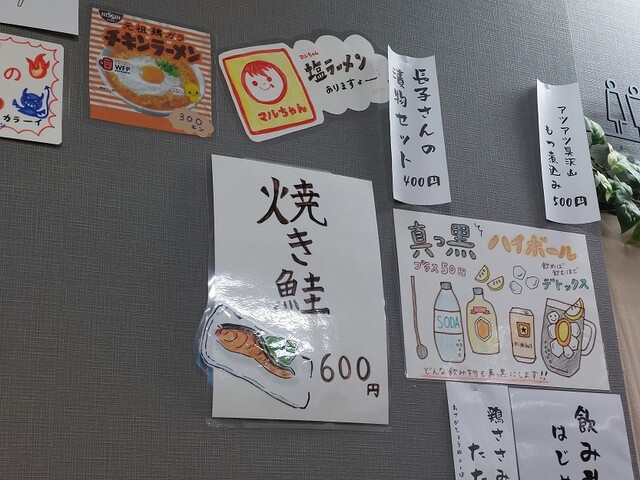 の
カラーイ
NISSIN
元祖鶏ガラ
チキンラーメン
WFP
300
エン
マルちゃん
マルちゃん
塩ラーメン
あります
長子さんの
漬物セット
400円
アツアツ具沢山
もつ煮込み
500円
焼き鮭
600円
真っ黒
ハイボール
プラス50円
飲めば
飲むほど
デトックス
SODA
どんな飲み物も真っ黒にします!!
鶏ささみ
たた
飲み
はじ